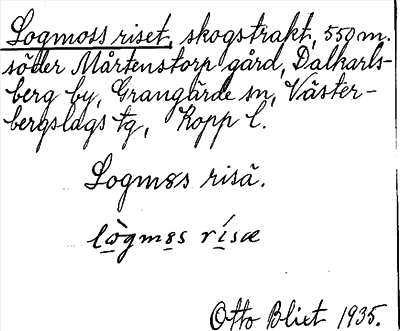 Logmoss riset, skogstrakt, 550 m.
söder Mårtenstorp gård, Dalkarls-
berg by, Grangärde sn, Väster-
bergslags tg, Kopp l.
Logm8s risä.
lògm8s rísæ
Otto Blixt 1935.